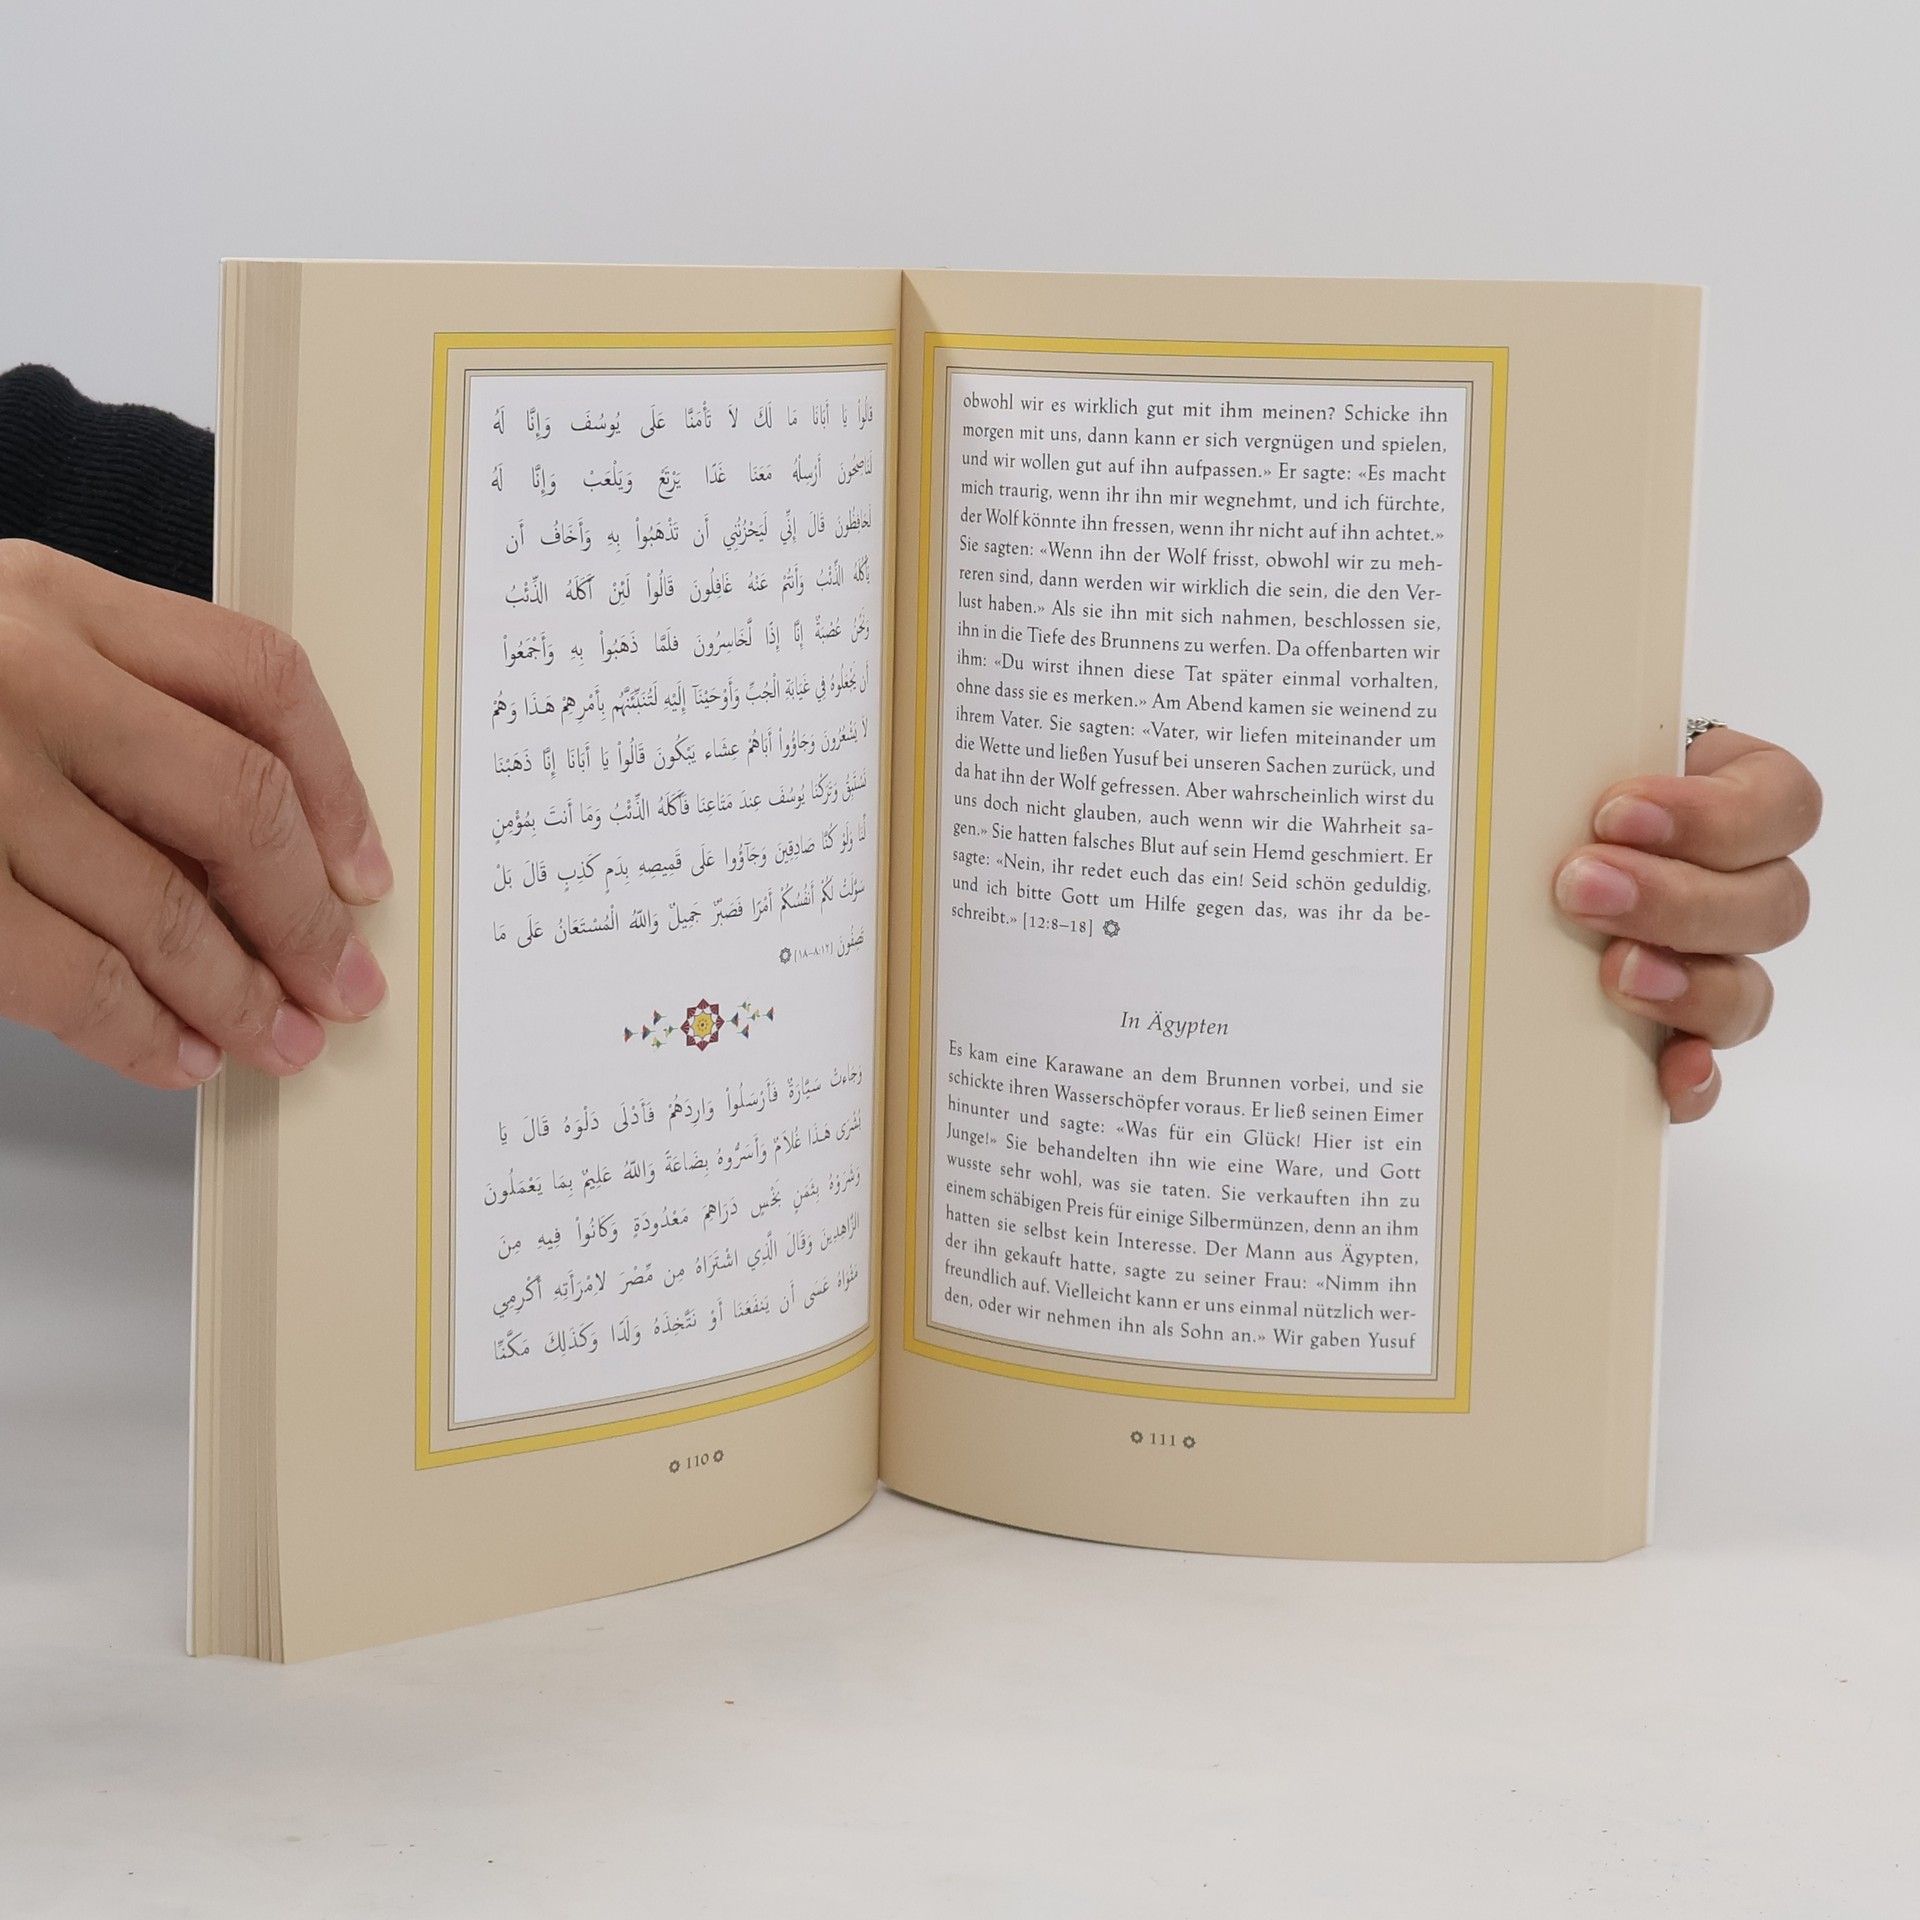 قَالُواْ يَا أَبَانَا مَا لَكَ لاَ تَأْمَنَّا عَلَى يُوسُفَ وَإِنَّا لَهُ
لَنَاصِحُونَ أَرْسِلْهُ مَعَنَا غَدًا يَرْتَعْ وَيَلْعَبْ وَإِنَّا لَهُ
لَحَافِظُونَ قَالَ إِنِّي لَيَحْزُنُنِي أَن تَذْهَبُواْ بِهِ وَأَخَافُ أَن
يَأْكُلَهُ الذِّئْبُ وَأَنتُمْ عَنْهُ غَافِلُونَ قَالُواْ لَئِنْ أَكَلَهُ الذِّئْبُ
وَنَحْنُ عُصْبَةٌ إِنَّا إِذًا لَّخَاسِرُونَ فَلَمَّا ذَهَبُواْ بِهِ وَأَجْمَعُواْ
أَن يَجْعَلُوهُ فِي غَيَابَةِ الْجُبِّ وَأَوْحَيْنَآ إِلَيْهِ لَتُنَبِّئَنَّهُم بِأَمْرِهِمْ هَذَا وَهُمْ
لاَ يَشْعُرُونَ وَجَاؤُواْ أَبَاهُمْ عِشَاء يَبْكُونَ قَالُواْ يَا أَبَانَا إِنَّا ذَهَبْنَا
نَسْتَبِقُ وَتَرَكْنَا يُوسُفَ عِندَ مَتَاعِنَا فَأَكَلَهُ الذِّئْبُ وَمَا أَنتَ بِمُؤْمِنٍ
لَّنَا وَلَوْ كُنَّا صَادِقِينَ وَجَآؤُوا عَلَى قَمِيصِهِ بِدَمٍ كَذِبٍ قَالَ بَلْ
سَوَّلَتْ لَكُمْ أَنفُسُكُمْ أَمْرًا فَصَبْرٌ جَمِيلٌ وَاللّهُ الْمُسْتَعَانُ عَلَى مَا
تَصِفُونَ [١٢:٨–١٨]
وَجَاءتْ سَيَّارَةٌ فَأَرْسَلُواْ وَارِدَهُمْ فَأَدْلَى دَلْوَهُ قَالَ يَا
بُشْرَى هَذَا غُلاَمٌ وَأَسَرُّوهُ بِضَاعَةً وَاللّهُ عَلِيمٌ بِمَا يَعْمَلُونَ
وَشَرَوْهُ بِثَمَنٍ بَخْسٍ دَرَاهِمَ مَعْدُودَةٍ وَكَانُواْ فِيهِ مِنَ
الزَّاهِدِينَ وَقَالَ الَّذِي اشْتَرَاهُ مِن مِّصْرَ لاِمْرَأَتِهِ أَكْرِمِي
مَثْوَاهُ عَسَى أَن يَنفَعَنَا أَوْ نَتَّخِذَهُ وَلَدًا وَكَذَلِكَ مَكَّنِّا
110
obwohl wir es wirklich gut mit ihm meinen? Schicke ihn
morgen mit uns, dann kann er sich vergnügen und spielen,
und wir wollen gut auf ihn aufpassen.» Er sagte: «Es macht
mich traurig, wenn ihr ihn mir wegnehmt, und ich fürchte,
der Wolf könnte ihn fressen, wenn ihr nicht auf ihn achtet.»
Sie sagten: «Wenn ihn der Wolf frisst, obwohl wir zu meh-
reren sind, dann werden wir wirklich die sein, die den Ver-
lust haben.» Als sie ihn mit sich nahmen, beschlossen sie,
ihn in die Tiefe des Brunnens zu werfen. Da offenbarten wir
ihm: «Du wirst ihnen diese Tat später einmal vorhalten,
ohne dass sie es merken.» Am Abend kamen sie weinend zu
ihrem Vater. Sie sagten: «Vater, wir liefen miteinander um
die Wette und ließen Yusuf bei unseren Sachen zurück, und
da hat ihn der Wolf gefressen. Aber wahrscheinlich wirst du
uns doch nicht glauben, auch wenn wir die Wahrheit sa-
gen.» Sie hatten falsches Blut auf sein Hemd geschmiert. Er
sagte: «Nein, ihr redet euch das ein! Seid schön geduldig,
und ich bitte Gott um Hilfe gegen das, was ihr da be-
schreibt.» [12:8–18]
In Ägypten
Es kam eine Karawane an dem Brunnen vorbei, und sie
schickte ihren Wasserschöpfer voraus. Er ließ seinen Eimer
hinunter und sagte: «Was für ein Glück! Hier ist ein
Junge!» Sie behandelten ihn wie eine Ware, und Gott
wusste sehr wohl, was sie taten. Sie verkauften ihn zu
einem schäbigen Preis für einige Silbermünzen, denn an ihm
hatten sie selbst kein Interesse. Der Mann aus Ägypten,
der ihn gekauft hatte, sagte zu seiner Frau: «Nimm ihn
freundlich auf. Vielleicht kann er uns einmal nützlich wer-
den, oder wir nehmen ihn als Sohn an.» Wir gaben Yusuf
111